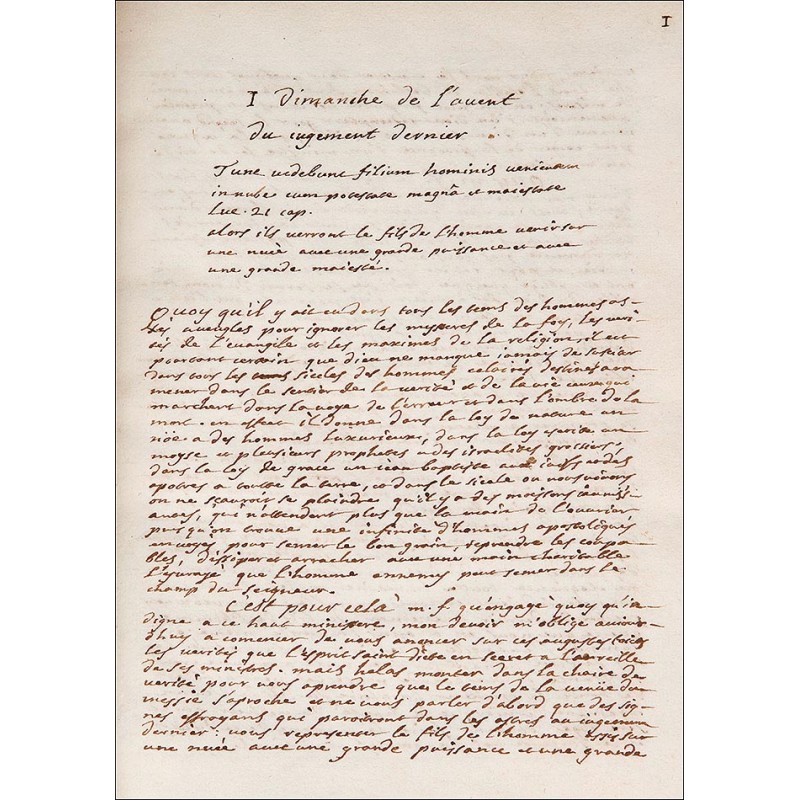 1
I Dimanche de l'avent
Du iugement dernier
Tunc videbunt filium hominis venientem
in nube cum potestate magnâ et maiestate
Luc. 21 cap.
alors ils verront le fils de l'homme venir sur
une nuée avec une grande puissance et avec
une grande maiesté.
Quoy qu'il y ait eu dans tous les tems des hommes as-
sés aveugles pour ignorer les mysteres de la foy, les veri-
tés de l'evangile et les maximes de la religion, il est
pourtant certain que dieu ne manque iamais de susciter
dans tous les siecles des hommes celaires destinés a ra
mener dans le sentier de la verité et de la vie ceux qui
marchent dans la voye de l'erreur et dans l'ombre de la
mort. en effect il donne dans la loy de nature un
nöe a des hommes luxurieux, dans la loy escrite un
moyse et plusieurs prophetes a des israelites grossiers,
dans la loy de grace un iean baptiste aux iuifs et des
apotres a toutte la terre, et dans le siecle ou nous vivons
on ne scauroit se plaindre qu'il y a des moissons iaunis-
antes, qui n'attendent plus que la main de l'ouvrier
puis qu'on trouve une infinité d'hommes apostoliques
envoyes pour semer le bon grain, reprendre les coupa-
bles, dissiper et arracher avec une main charitable
l'yuraye que l'homme ennemy peut semer dans le
champ du seigneur.
C'est pour cela m. f. qu'engagé quoy qu'in-
digne a ce haut ministere, mon devoir m'oblige auiour-
d'huy a comencer de vous anoncer sur ces augustes
les verités que l'esprit saint dicte en secret a l'oreille
de ses ministres. mais helas monter dans la chaire de
verité pour vous aprendre que le tems de la venüe du
messie s'aproche et ne vous parler d'abord que des sig-
nes effroyans qui paroitront dans les astres au iugement
dernier: vous representer le fils de l'homme assis sur
une nuée avec une grande puissance et une grande